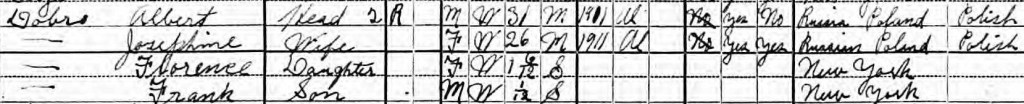 Dobro Albert Head 2 R M W 31 M 1911 Al No Yes No Russia Poland Polish
— Josephine Wife F W 26 M 1911 Al No Yes Yes Russian Poland Polish
— Florence Daughter F W 1 6/12 S New York
— Frank Son . M W 1/12 S New York